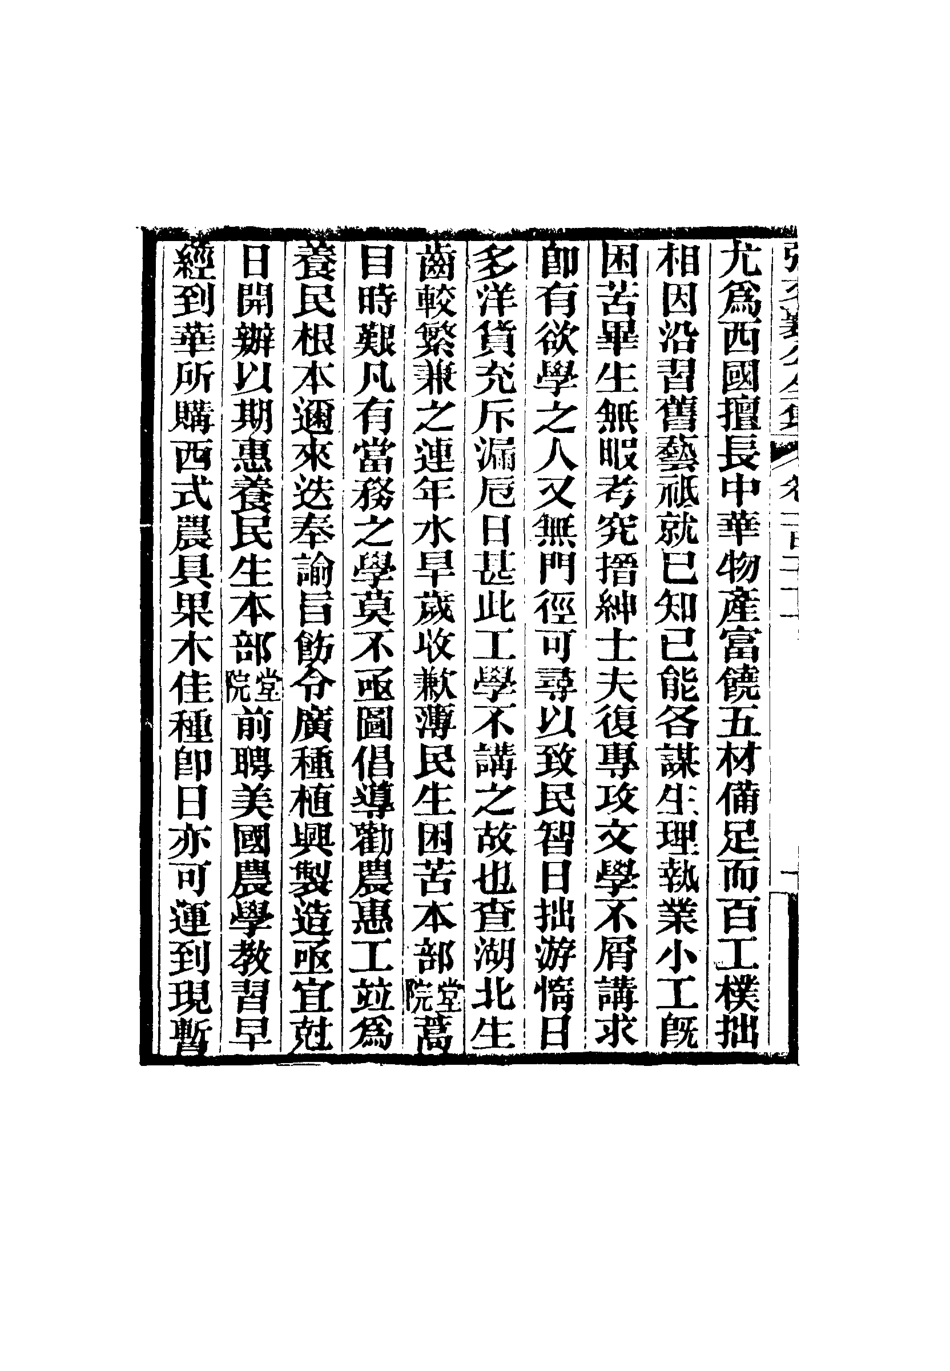 尤爲西國擅長中華物產富饒五材備足而百工樸拙
相因沿習舊藝祇就已知已能各謀生理執業小工旣
困苦畢生無暇考究搢紳士夫復專攻文學不屑講求
卽有欲學之人又無門徑可尋以致民智日拙游惰日
多洋貨充斥漏卮日甚此工學不講之故也查湖北生
齒較繁兼之連年水旱歲收歉薄民生困苦本部堂院蒿
目時艱凡有當務之學莫不亟圖倡導勸農惠工竝爲
養民根本邇來迭奉諭旨飭令廣種植興製造亟宜尅
日開辦以期惠養民生本部堂院前聘美國農學教習早
經到華所購西式農具果木佳種卽日亦可運到現暫